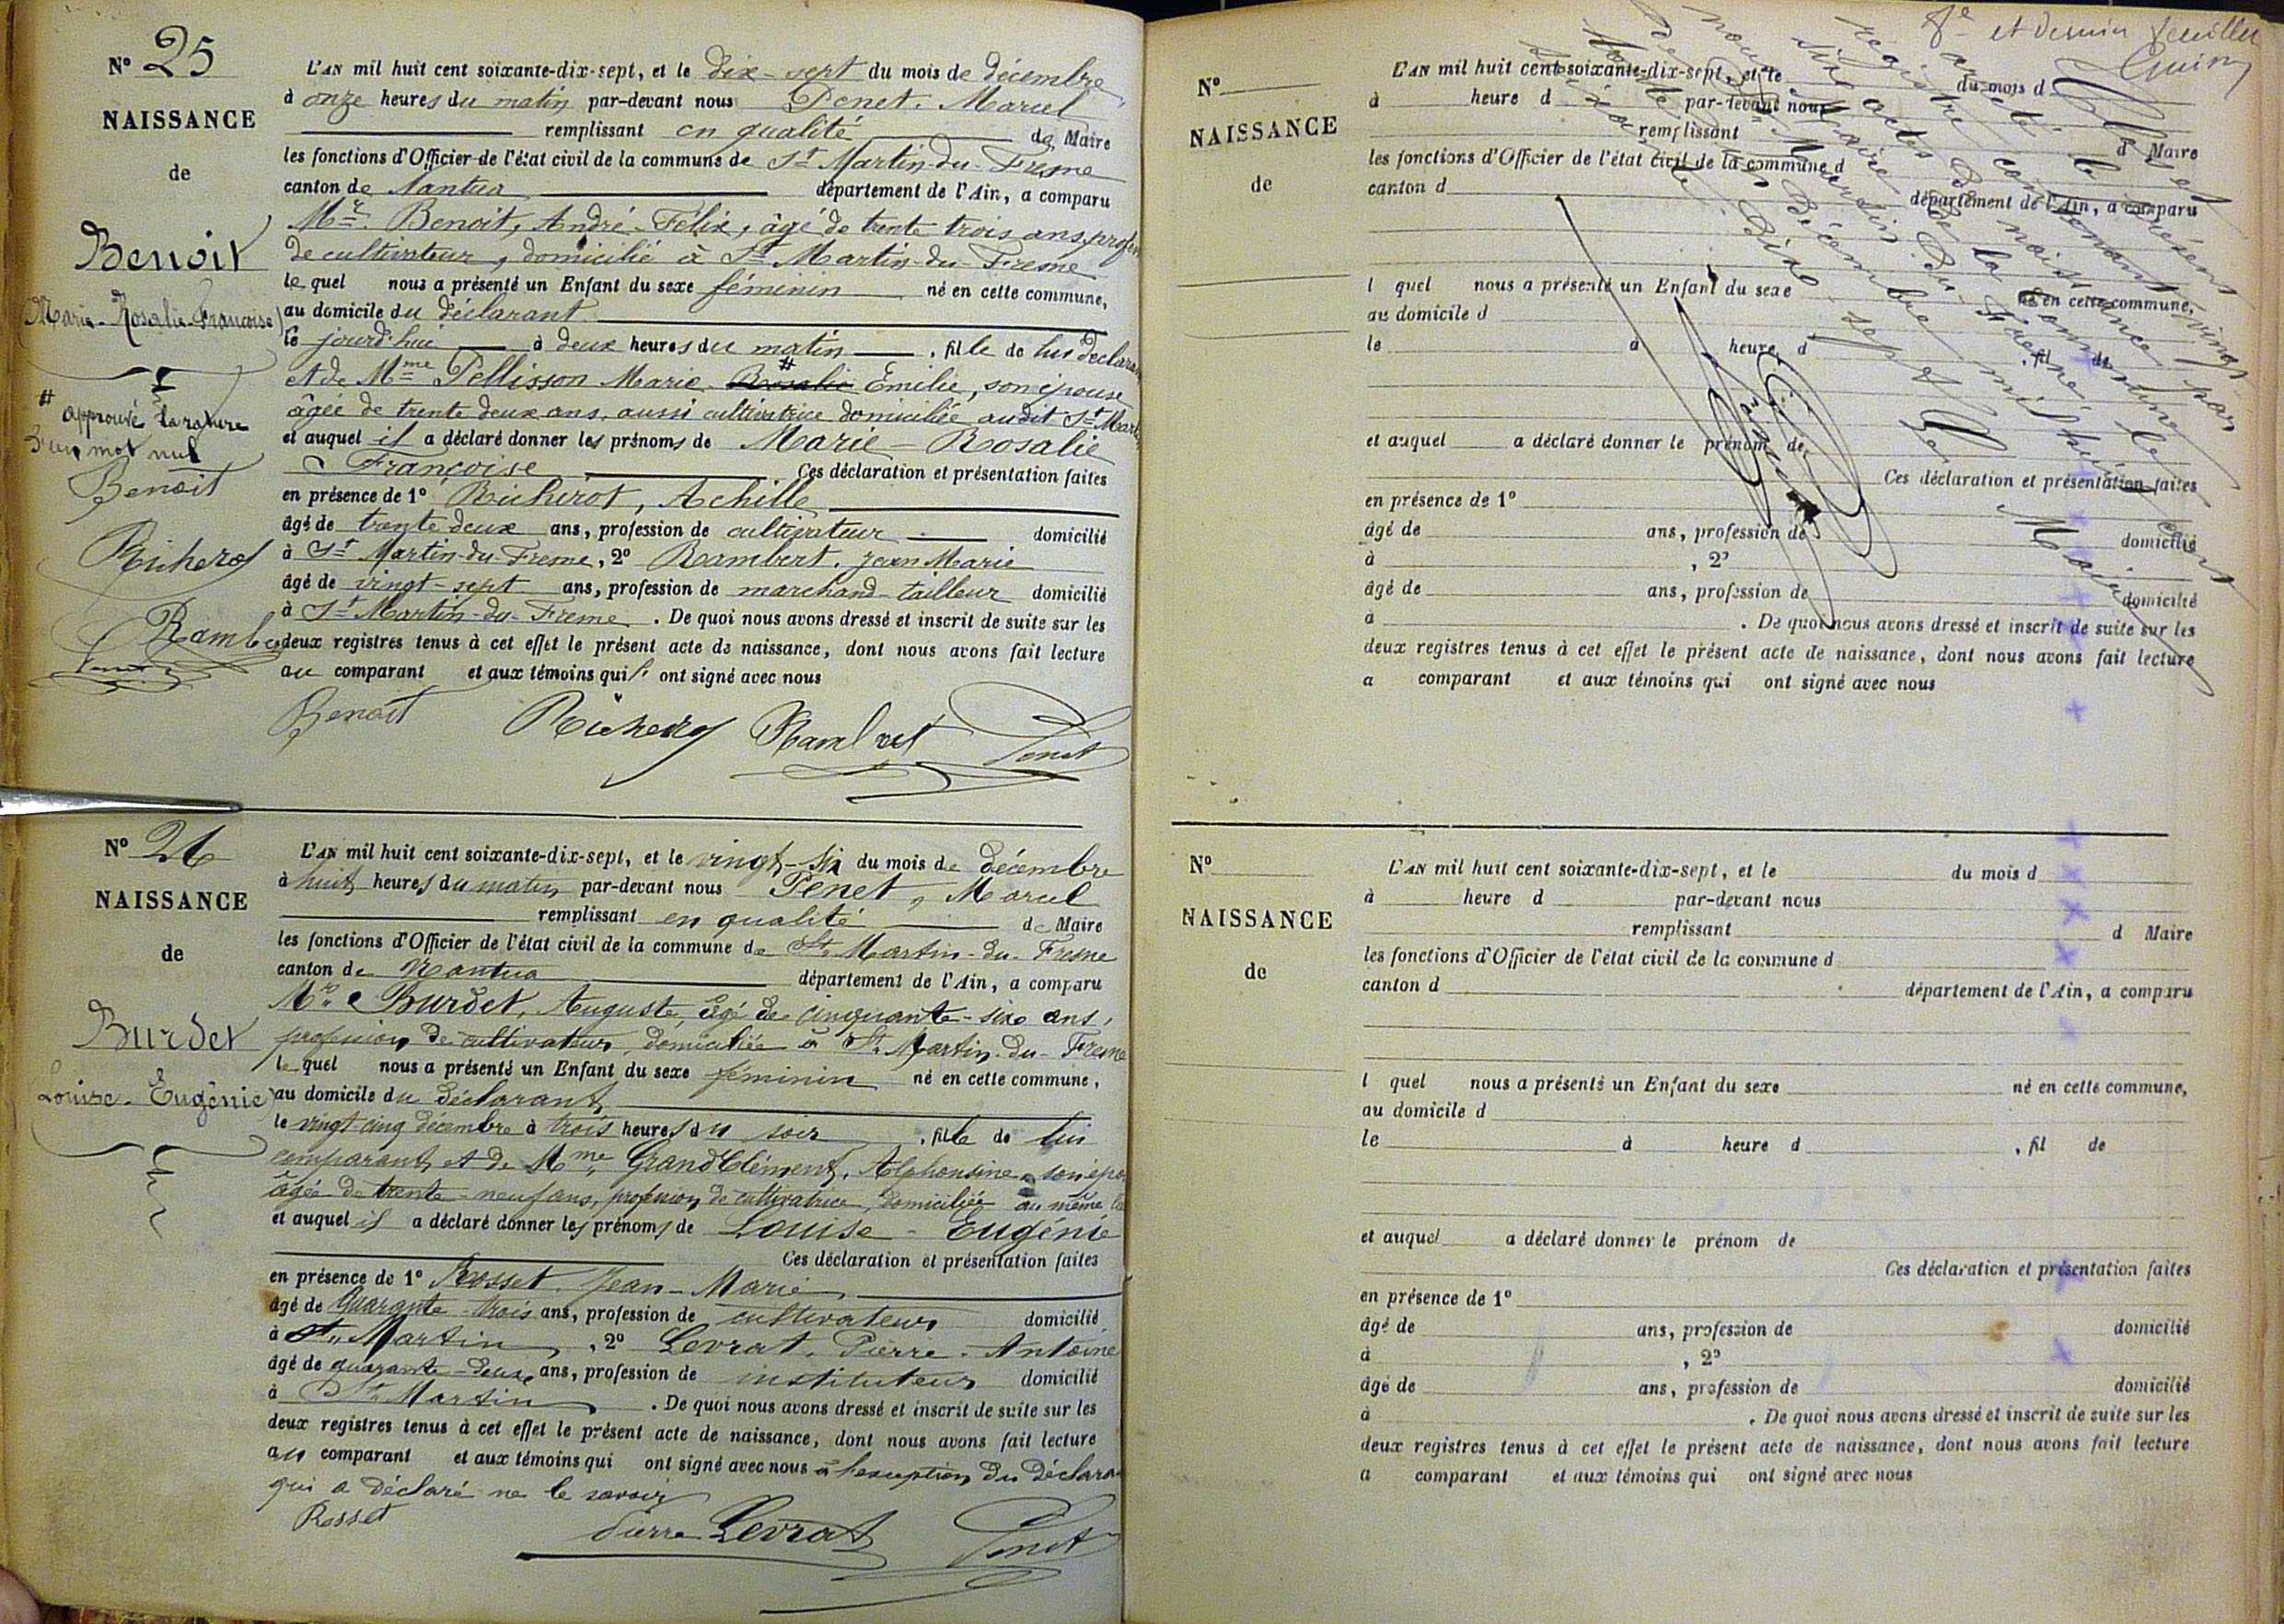 N° 25
NAISSANCE
de
Benoit
Marie-Rosalie-Françoise
# approuvé la rature
d'un mot nul
Benoit
Richerot
Rambert
Penet
L'AN mil huit cent soixante-dix-sept, et le dix-sept du mois de décembre
à onze heures du matin par-devant nous Penet, Marcel
remplissant en qualité de Maire
les fonctions d'Officier de l'état civil de la commune de St Martin-du-Fresne
canton de Nantua département de l'Ain, a comparu
Mr. Benoit, André-Félix, âgé de trente trois ans, profon
de cultivateur, domicilié à St Martin-du-Fresne
lequel nous a présenté un Enfant du sexe féminin né en cette commune,
au domicile du déclarant
le jourd'hui à deux heures du matin, fille de lui déclarant
et de Mme Pellisson Marie-Rosalie # Émilie, son épouse
âgée de trente deux ans, aussi cultivatrice domiciliée audit St Martin
et auquel il a déclaré donner les prénoms de Marie-Rosalie
Françoise Ces déclaration et présentation faites
en présence de 1° Richerot, Achille
âgé de trente deux ans, profession de cultivateur domicilié
à St Martin-du-Fresne, 2° Rambert, Jean Marie
âgé de vingt-sept ans, profession de marchand-tailleur domicilié
à St Martin-du-Fresne. De quoi nous avons dressé et inscrit de suite sur les
deux registres tenus à cet effet le présent acte de naissance, dont nous avons fait lecture
au comparant et aux témoins qui ont signé avec nous
Benoit Richerot Rambert Penet
N° 26
NAISSANCE
de
Burdet
Louise-Eugénie
L'AN mil huit cent soixante-dix-sept, et le vingt-six du mois de décembre
à huit heures du matin par-devant nous Penet, Marcel
remplissant en qualité de Maire
les fonctions d'Officier de l'état civil de la commune de St Martin-du-Fresne
canton de Nantua département de l'Ain, a comparu
Mr. Burdet, Auguste, âgé de cinquante-six ans,
profession de cultivateur, domiciliée à St Martin-du-Fresne
lequel nous a présenté un Enfant du sexe féminin né en cette commune,
au domicile du déclarant
le vingt cinq décembre à trois heures du soir, fille de lui
comparant et de Mme GrandClément, Alphonsine, son épo
âgée de trente-neuf ans, profession de cultivatrice, domiciliée au même
et auquel il a déclaré donner les prénoms de Louise-Eugénie
Ces déclaration et présentation faites
en présence de 1° Rosset Jean-Marie
âgé de quarante-trois ans, profession de cultivateur domicilié
à St Martin, 2° Levrat, Pierre-Antoine
âgé de quarante-deux ans, profession de instituteur domicilié
à St Martin. De quoi nous avons dressé et inscrit de suite sur les
deux registres tenus à cet effet le présent acte de naissance, dont nous avons fait lecture
au comparant et aux témoins qui ont signé avec nous à l'exception du Déclarant
qui a déclaré ne le savoir
Rosset Pierre Levrat Penet
8e et dernier feuillet
N°
NAISSANCE
de
L'AN mil huit cent soixante-dix-sept, et le du mois d
à heure d par-devant nous
remplissant d Maire
les fonctions d'Officier de l'état civil de la commune d
canton d département de l'Ain, a comparu
l quel nous a présenté un Enfant du sexe né en cette commune,
au domicile d
le à heure d , fil de
et auquel a déclaré donner le prénom de
Ces déclaration et présentation faites
en présence de 1°
âgé de ans, profession de domicilié
à , 2°
âgé de ans, profession de domicilié
à . De quoi nous avons dressé et inscrit de suite sur les
deux registres tenus à cet effet le présent acte de naissance, dont nous avons fait lecture
a comparant et aux témoins qui ont signé avec nous
Clos et
arrêté le présent
registre contenant vingt
six actes de naissance par
nous Maire de la commune de
St Martin-du-Fresne le
décembre mil huit cent
soixante dix sept
Le Maire
N°
NAISSANCE
de
L'AN mil huit cent soixante-dix-sept, et le du mois d
à heure d par-devant nous
remplissant d Maire
les fonctions d'Officier de l'état civil de la commune d
canton d département de l'Ain, a comparu
l quel nous a présenté un Enfant du sexe né en cette commune,
au domicile d
le à heure d , fil de
et auquel a déclaré donner le prénom de
Ces déclaration et présentation faites
en présence de 1°
âgé de ans, profession de domicilié
à , 2°
âgé de ans, profession de domicilié
à . De quoi nous avons dressé et inscrit de suite sur les
deux registres tenus à cet effet le présent acte de naissance, dont nous avons fait lecture
a comparant et aux témoins qui ont signé avec nous